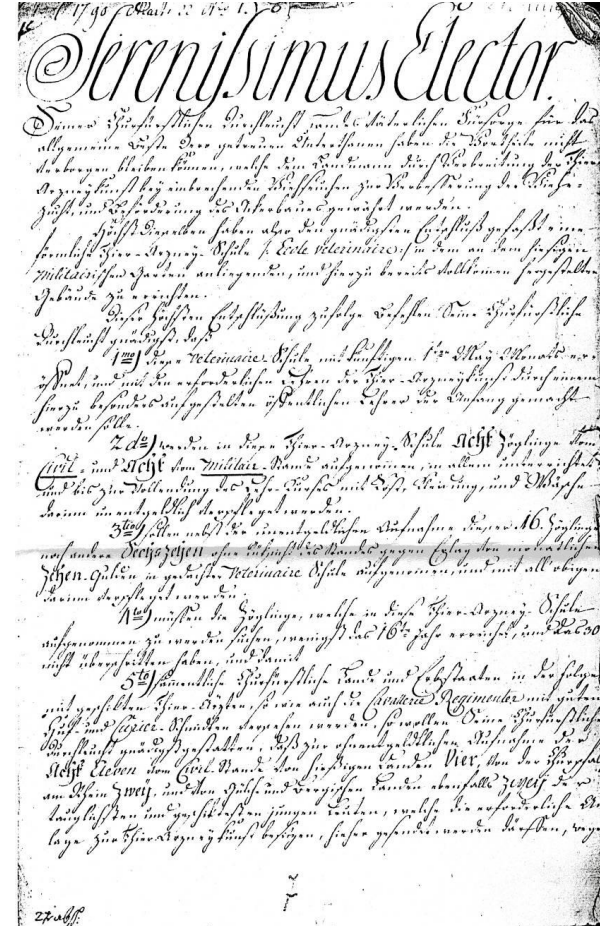 1790
Serenissimus Elector.
Seiner Churfürstlichen Durchleucht Landesväterlichen Fürsorge für das
allgemeine Beste dero getreuen Unterthanen haben die Vortheile nicht
verborgen bleiben können, welche dem Landmann durch Verbreitung der Thier
Arzneykunst bey einbrechenden Viehseuchen zur Verbesserung der Vieh-
zucht, und Beförderung des Ackerbaues gewährt werden.
Höchst Dieselben haben also den gnädigsten Entschluß gefaßt eine
förmliche Thier-Arzney-Schule /: Ecole veterinaire :/ in dem an dem hiesigen
Militairischen Garten anliegenden, und hierzu bereits vollkommen hergestellten
Gebäude zu errichten.
Dieser höchsten Entschlüßung zufolge befehlen Seine Churfürstliche
Durchleucht gnädigst, daß
1mo) diese Veterinaire Schule mit künftigen 1ten May-Monats er-
öffnet, und mit den erforderlichen Lehren der Thier-Arzneykunst durch einen
hierzu besonders aufgestellten öffentlichen Lehrer der Anfang gemacht
werden solle.
2do) werden in diese Thier-Arzney-Schule Acht Zöglinge vom
Civil- und Acht vom Militair-Stande aufgenommen, in allem unterrichtet
und bis zur Vollendung des Lehr-Kurses mit Kost, Kleidung, und Wäsche
darinn unentgeldlich verpfleget werden.
3tio) sollen nebst der unentgeldlichen Aufnahme dieser 16. Zöglinge
noch andere Sechszehen ohne des Standes gegen Erlag von monatlichen
Zehen Gulden in gedachte Veterinaire Schule aufgenommen, und mit all obigen
darinn verpfleget werden.
4to) müssen die Zöglinge, welche in diese Thier-Arzney-Schule
aufgenommen zu werden suchen, wenigst das 16te Jahr erreichet, und das 30
nicht überschritten haben, und damit
5to) sämmentliche Churfürstliche Lande und Erbstaaten in der Folge
mit geschikten Thier-Ärzten, so wie auch die Cavallerie Regimenter mit guten
Huf- und Schmidten versehen werden, so wollen Seine Churfürstliche
Durchleucht gnädigst gestatten, daß zur unentgeldlichen Aufnahme der
Acht Eleven vom Civil-Stande von hiesigen Landen Vier, von der Churpfalz
am Rhein Zwey, und von Gülch und Bergischen Landen ebenfalls Zwey der
tauglichsten und geschiktesten jungen Leuten, welche die erforderliche An
lage zur Thier-Arzneykunst besitzen, hieher gesendet werden dürffen, wege